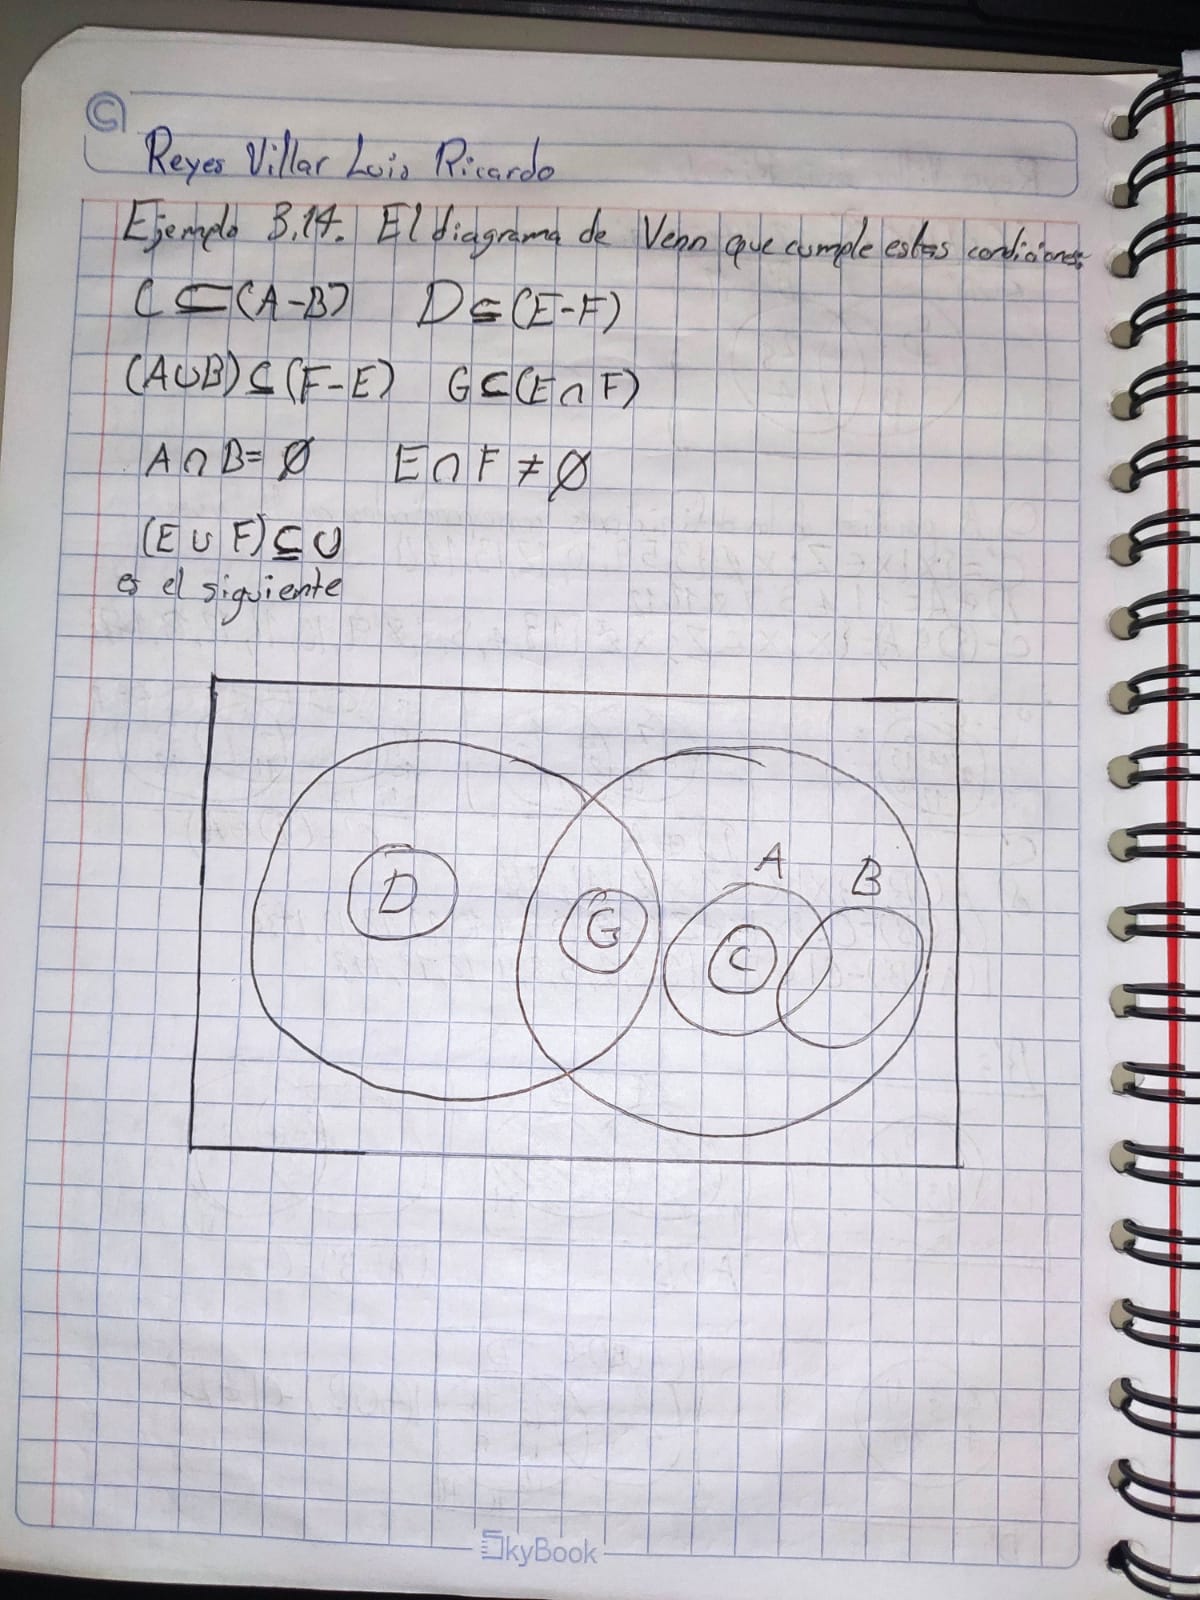 Reyes Villar Luis Ricardo
Ejemplo 3.14. El diagrama de Venn que cumple estas condiciones
C ⊆ (A-B) D ⊆ (E-F)
(A∪B) ⊆ (F-E) G ⊆ (E ∩ F)
A ∩ B = ∅ E ∩ F ≠ ∅
(E ∪ F) ⊆ U
es el siguiente
A
B
D
G
C
SkyBook